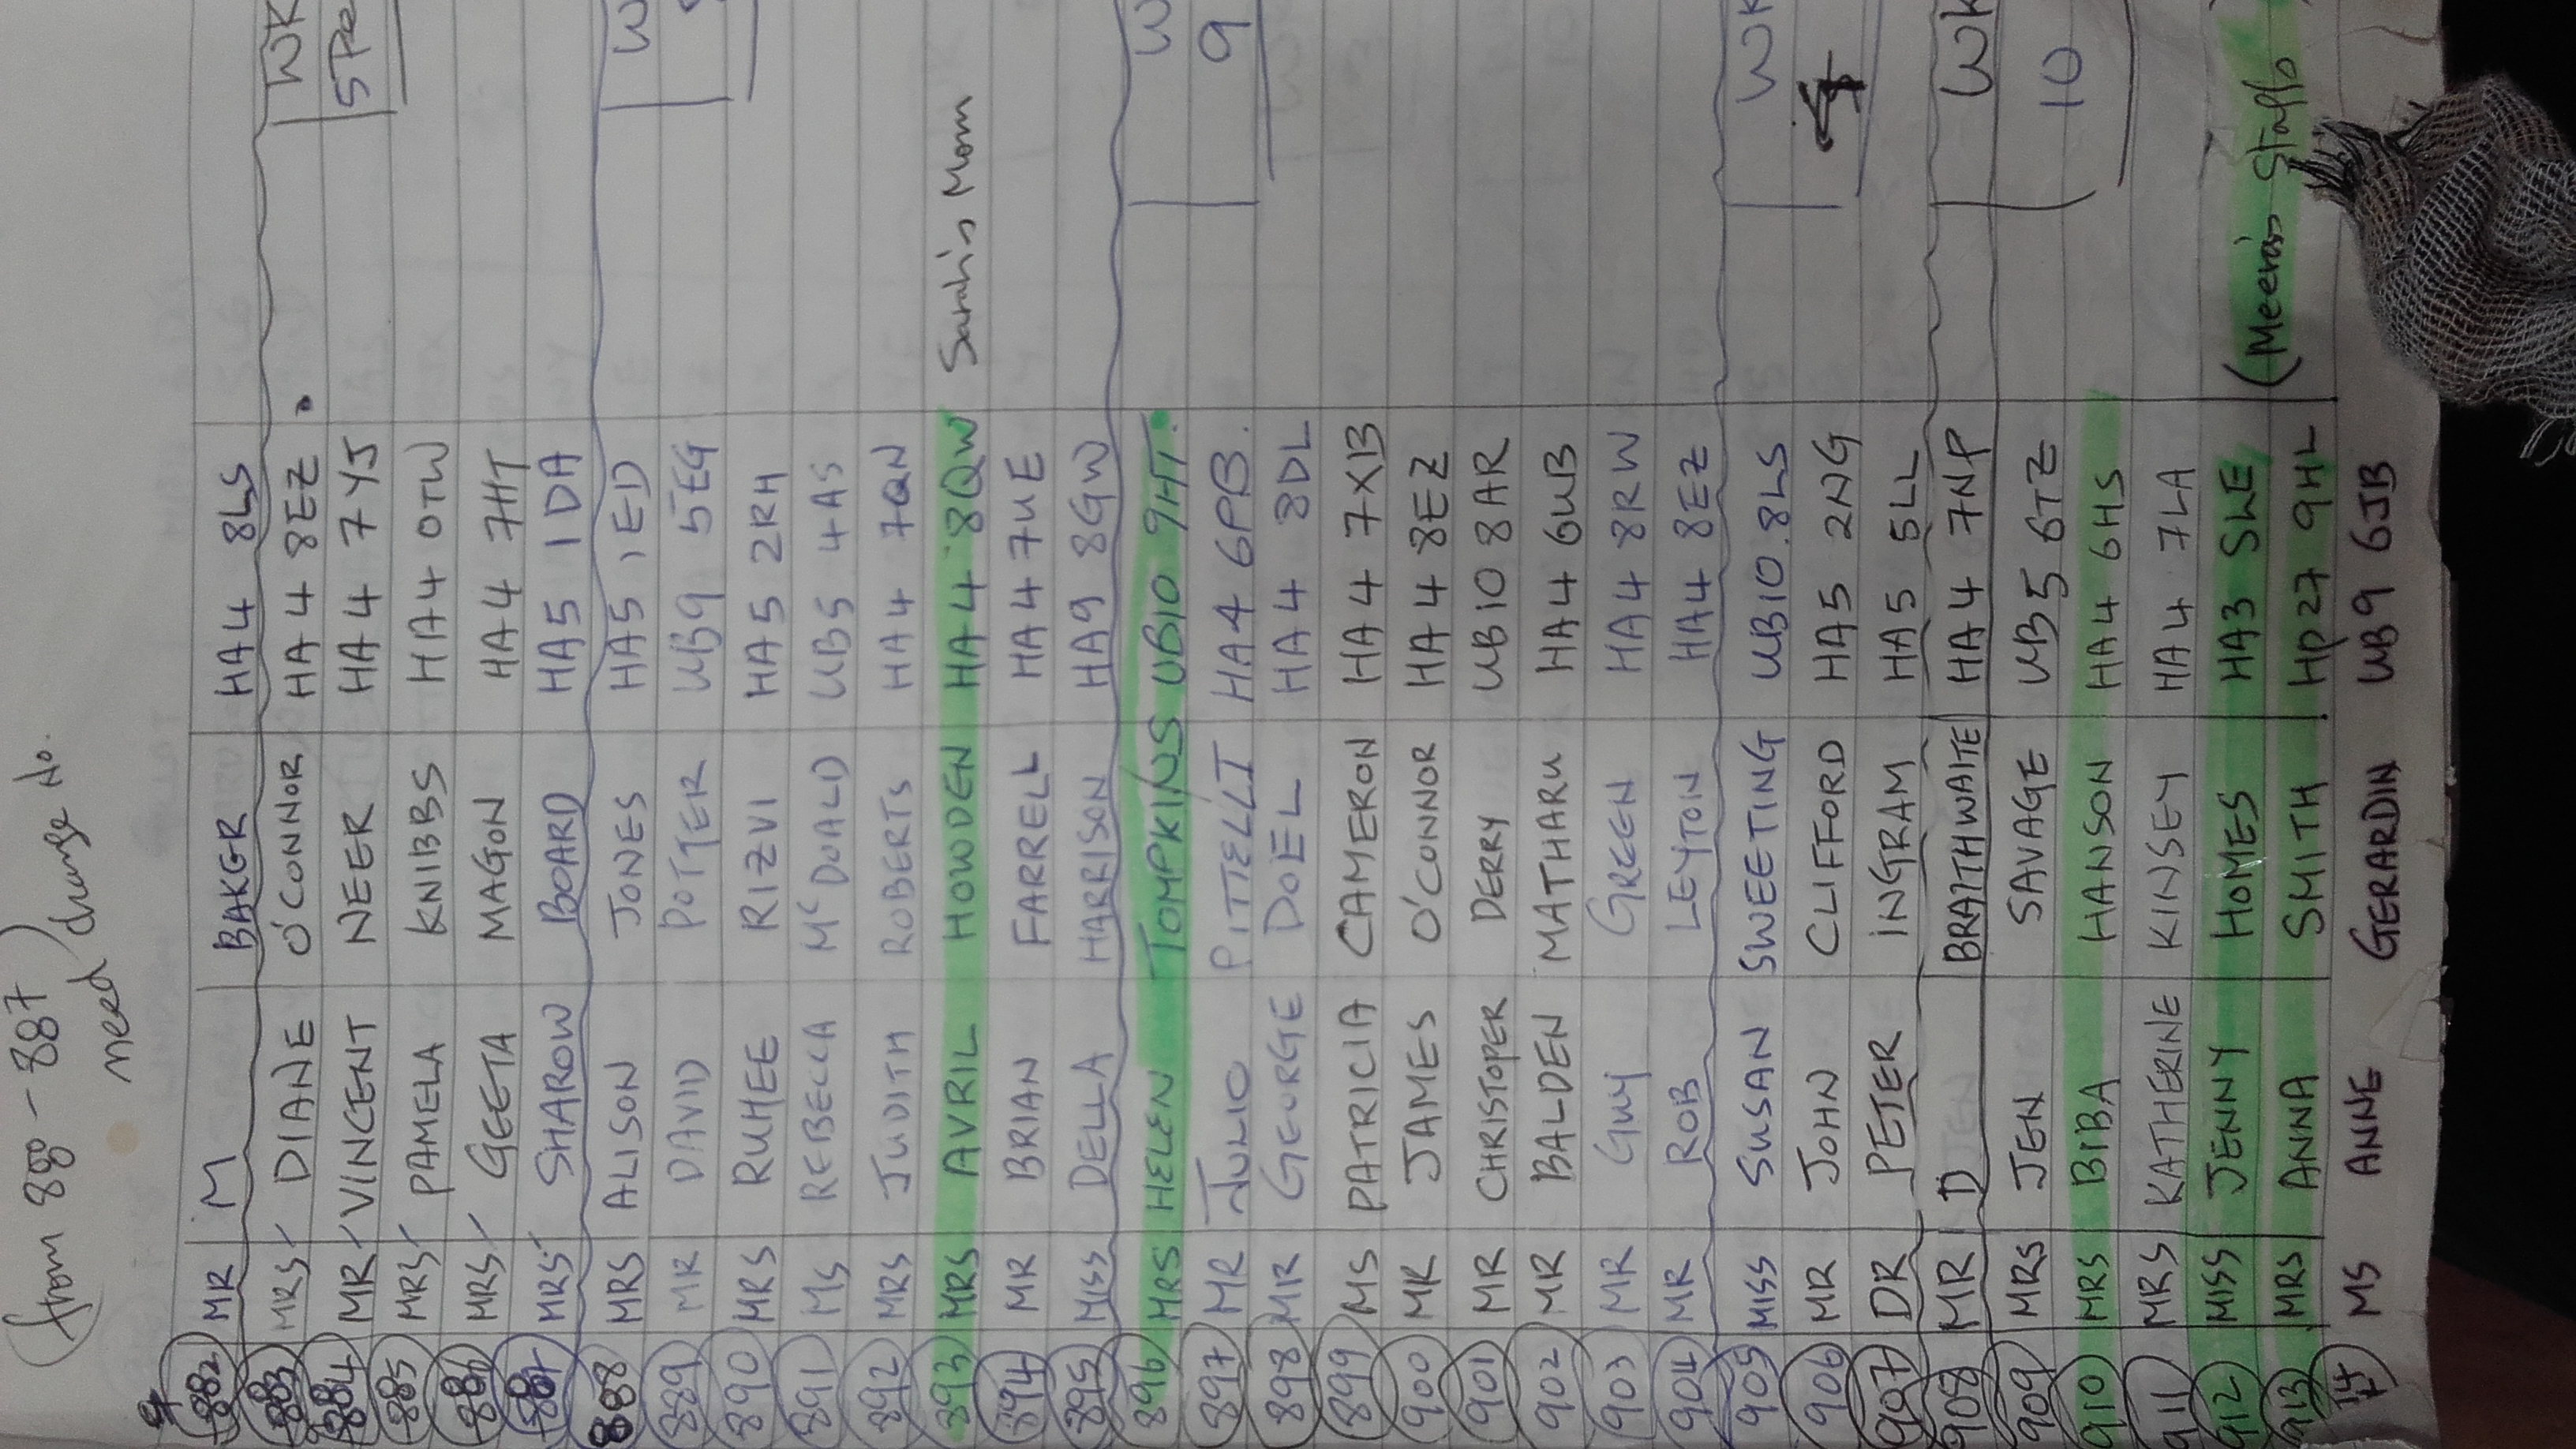 (from 880 - 887)
need change No.
882 MR M BAKER HA4 8LS
883 MRS DIANE O'CONNOR HA4 8EZ WK
884 MR VINCENT NEER HA4 7YJ 5 Pe
885 MRS PAMELA KNIBBS HA4 0TW
886 MRS GEETA MAGON HA4 7HT
887 MRS SHAROW BOARD HA5 1DA
888 MRS ALISON JONES HA5 1ED W
889 MR DAVID POTTER UB9 5EG
890 MRS RUHEE RIZVI HA5 2RH
891 MS REBECCA McDOALD UB5 4AS
892 MRS JUDITH ROBERTS HA4 7QN
893 MRS AVRIL HOWDEN HA4 8QW Sarah's Mom
894 MR BRIAN FARRELL HA4 7UE
895 MISS DELLA HARRISON HA9 8GW
896 MRS HELEN TOMPKINS UB10 9HT. W
897 MR JULIO PITTELLI HA4 6PB. 9
898 MR GEORGE DOEL HA4 8DL
899 MS PATRICIA CAMERON HA4 7XB
900 MR JAMES O'CONNOR HA4 8EZ
901 MR CHRISTOPER DERRY UB10 8AR
902 MR BALDEN MATHARU HA4 6UB
903 MR GUY GREEN HA4 8RW
904 MR ROB LEYTON HA4 8EZ
905 MISS SUSAN SWEETING UB10.8LS WK
906 MR JOHN CLIFFORD HA5 2NG
907 DR PETER INGRAM HA5 5LL
908 MR D BRAITHWAITE HA4 7NP WK
909 MRS JEN SAVAGE UB5 6TZ 10
910 MRS BIBA HANSON HA4 6HS
911 MRS KATHERINE KINSEY HA4 7LA
912 MISS JENNY HOMES HA3 5LE
(Meera's Staffs
913 MRS ANNA SMITH HP27 9HL
14 MS ANNE GERARDIN UB9 6JB